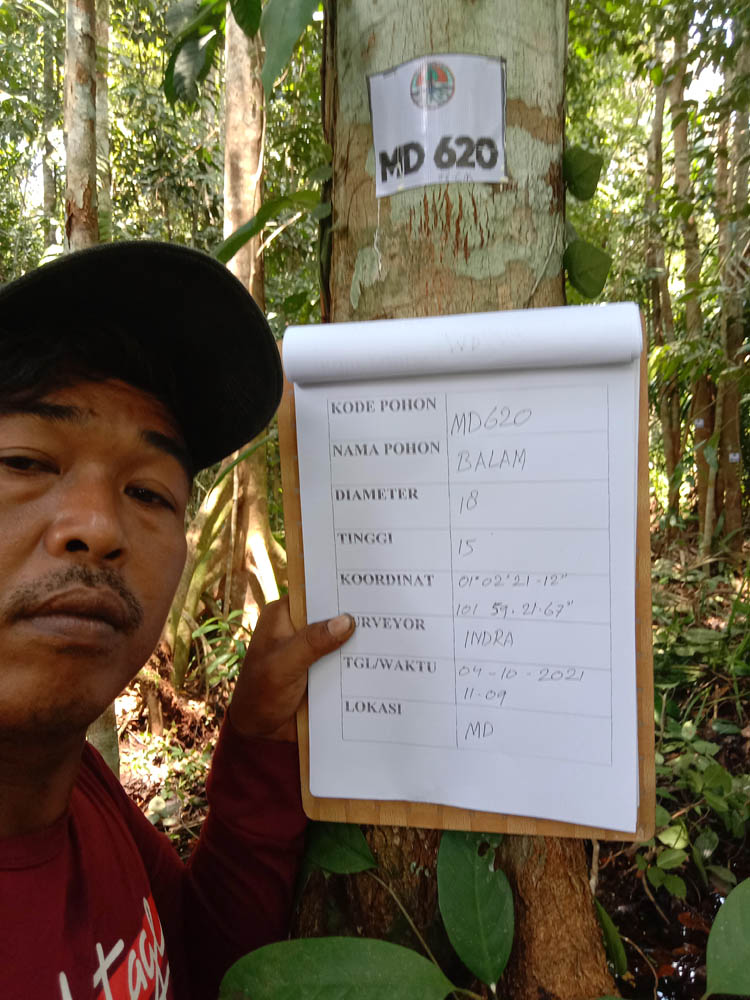 MD 620
KODE POHON MD620
NAMA POHON BALAM
DIAMETER 18
TINGGI 15
KOORDINAT 01°02'21-12"
101 59.21.67"
URVEYOR INDRA
TGL/WAKTU 04-10-2021
11-09
LOKASI MD